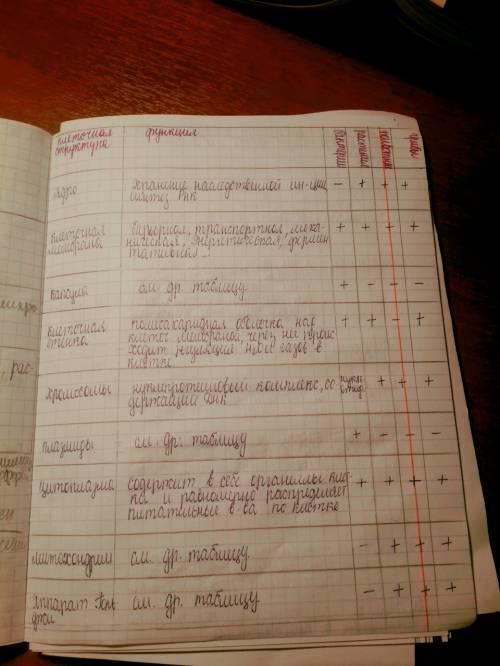 клеточная структура функция бактерии растения животные грибы
ядро хранение наследственной ин-ции, - + + +
синтез РНК
клеточная барьерная, транспортная, меха- + + + +
мембрана ническая, энергетическая, фермен
тативная
капсула см. др. таблицу + - - -
клеточная полисахаридная оболочка над + + - +
стенка клеточ мембраной, через неё проис
ходит регуляция и газов в
клетке
хромосомы нуклепротеиновый комплекс, со + + +
держащий ДНК
плазмиды см. др. таблицу + - - -
цитоплазма содержит в себе органиллы клет + + + +
ки и равномерно распределяет
питательные в-ва по клетке
митохондрии см. др. таблицу. - + + +
Аппарат Голь см. др. таблицу - + + +
джи
рас-